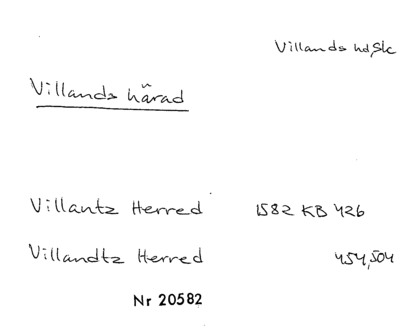 Villands hd, Sk
Villands härad
Villantz Herred 1582 KB 426
Villandtz Herred 454,504
Nr 20582